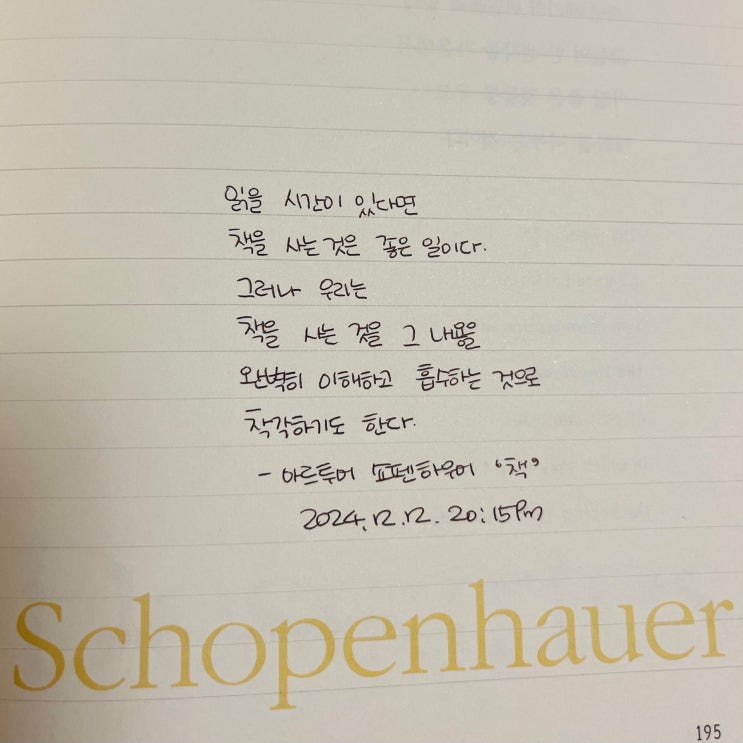 읽을 시간이 있다면
책을 사는 것은 좋은 일이다.
그러나 우리는
책을 사는 것을 그 내용을
완벽히 이해하고 흡수하는 것으로
착각하기도 한다.
- 아르투어 쇼펜하우어 "책"
2024.12.12. 20:15pm
Schopenhauer
195